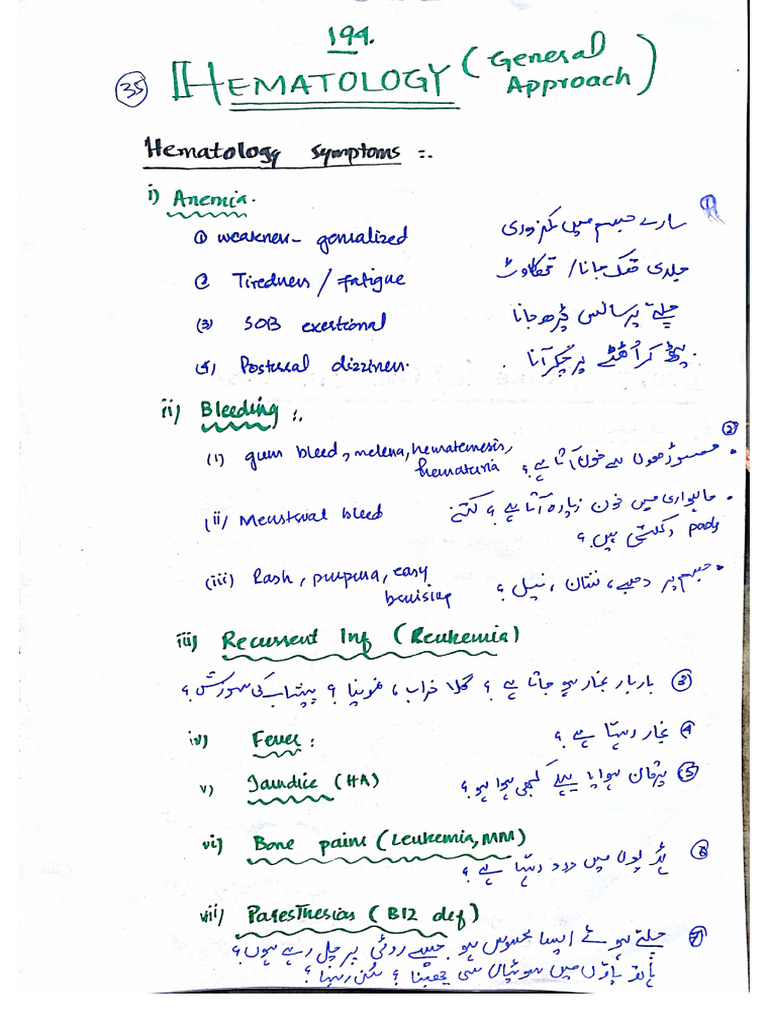 194.
35 HEMATOLOGY (General Approach)
Hematology Symptoms :-.
i) Anemia.
① weakness - genralized سارے جسم میں کمزوری ①
② Tiredness / fatigue جلدی تھک جانا / تھکاوٹ
(3) SOB exertional چلنے پر سانس چڑھ جانا
(4) Postural dizziness. بیٹھ کر اُٹھنے پر چکر آنا
ii) Bleeding :.
(i) gum bleed, melena, hematemesis, hematuria مسوڑھوں سے خون آتا ہے؟ ②
(ii) Menstrual bleed ماہواری میں خون زیادہ آتا ہے؟ کتنے
pads رکھتی ہیں؟
(iii) Rash, purpura, easy bruising جسم پر دھبے، نشان، نیل؟
iii) Recurrent Inf (Leukemia)
③ بار بار بخار ہو جاتا ہے؟ گلا خراب، نمونیا؟ پیشاب کی سوزش؟
iv) Fever : ④ بخار رہتا ہے؟
v) Jaundice (HA) ⑤ یرقان ہوا یا پہلے کبھی ہوا ہو؟
vi) Bone pains (Leukemia, MM)
⑥ ہڈیوں میں درد رہتا ہے؟
vii) Paresthesias (B12 def)
⑦ چلتے ہوئے ایسا محسوس ہو جیسے روئی پر چل رہے ہوں؟
ہاتھ پاؤں میں سوئیاں سی چبھنا؟ سُن رہنا؟